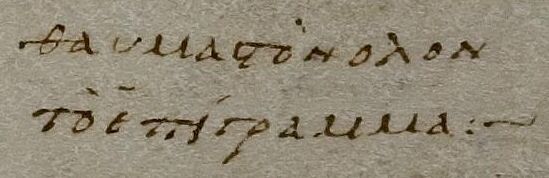 θαυμαστὸν ὅλον
τὸ ἐπίγραμμα:~